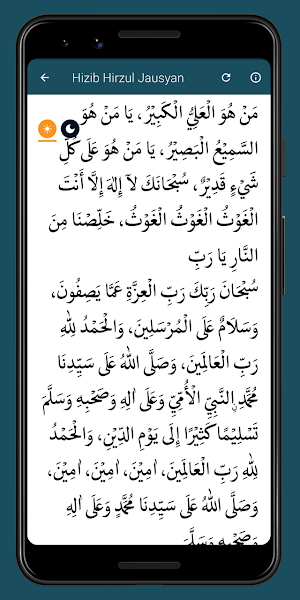 Hizib Hirzul Jausyan
مَنْ هُوَ الْعَلِيُّ الْكَبِيْرُ، يَا مَنْ هُوَ
السَّمِيْعُ الْبَصِيْرُ، يَا مَنْ هُوَ عَلَى كُلِّ
شَيْءٍ قَدِيْرٌ، سُبْحَانَكَ لآ إِلٰهَ إِلَّا أَنْتَ
الْغَوْثُ الْغَوْثُ الْغَوْثُ، خَلِّصْنَا مِنَ
النَّارِ يَا رَبِّ
سُبْحَانَ رَبِّكَ رَبِّ الْعِزَّةِ عَمَّا يَصِفُونَ،
وَسَلَامٌ عَلَى الْمُرْسَلِينَ، وَالْحَمْدُ لِلّٰهِ
رَبِّ الْعَالَمِينَ، وَصَلَّى اللهُ عَلَى سَيِّدِنَا
مُحَمَّدٍ النَّبِيِّ الْأُمِّيِّ وَعَلَى اٰلِهِ وَصَحْبِهِ وَسَلَّمَ
تَسْلِيْمًا كَثِيْرًا إِلَى يَوْمِ الدِّيْنِ، وَالْحَمْدُ
لِلّٰهِ رَبِّ الْعَالَمِيْنَ، اٰمِيْنَ، اٰمِيْنَ، اٰمِيْنَ،
وَصَلَّى اللهُ عَلَى سَيِّدِنَا مُحَمَّدٍ وَعَلَى اٰلِهِ
وَصَحْبِهِ وَسَلَّمَ